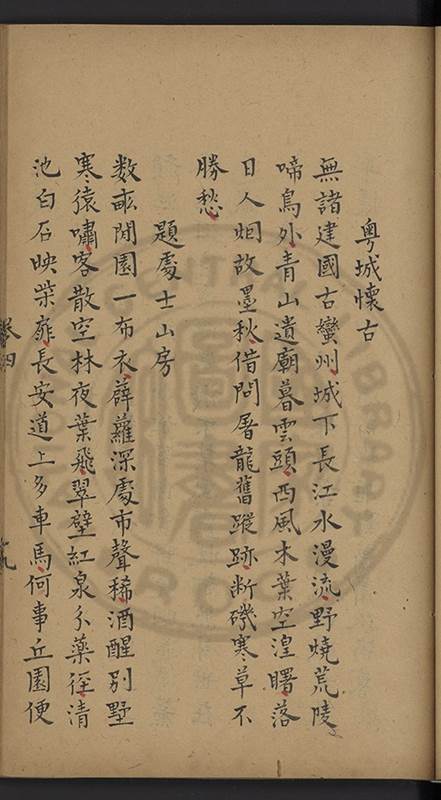 粤城懷古
無諸建國古蠻州城下長江水漫流野燒荒陵
啼鳥外青山遺廟暮雲頭西風木葉空湟曙落
日人烟故墨秋借問屠龍舊蹤跡断磯寒草不
勝愁
題處士山房
数畝閒園一布衣薜蘿深處市聲稀酒醒別墅
寒猿嘯客散空林夜葉飛翠壁紅泉分藥徑清
池白石映柴扉長安道上多車馬何事丘園便